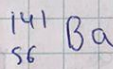 ¹⁴¹₅₆Ba